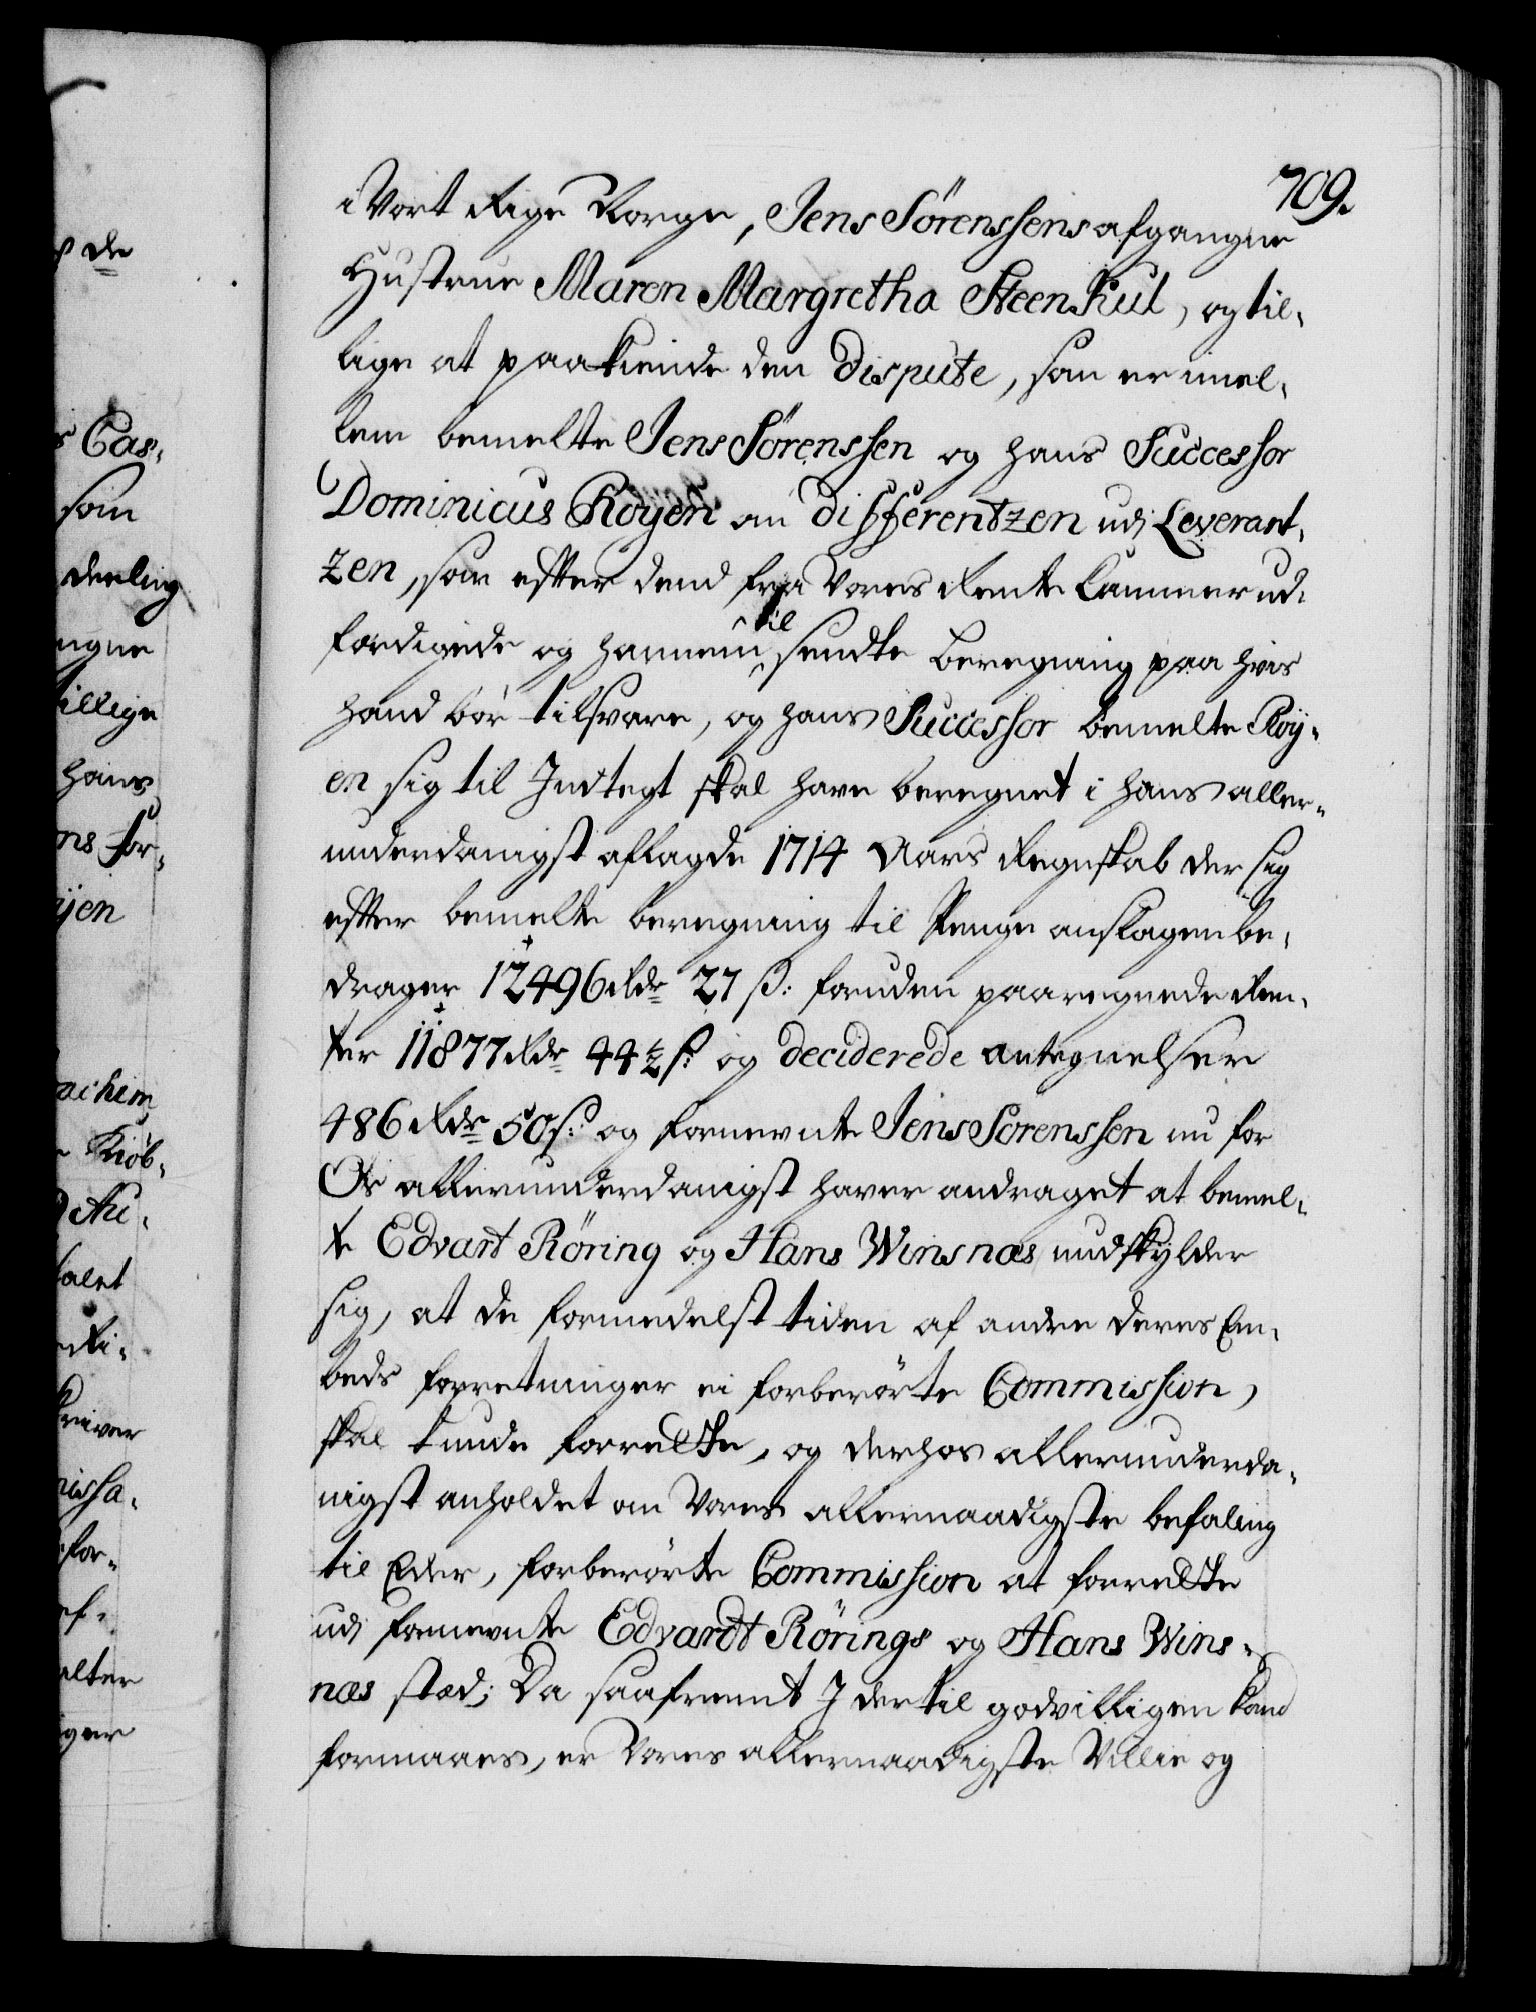 709.
i Vort Rige Norge, Jens Sörenssens afgangne
Hustrue Maren Margretha Steenkul, og til-
lige at paakiende den Dispute, som er imel-
lem bemelte Jens Sörenssen og hans Successor
Dominicus Royen om differentzen udj Leverant-
zen, som efter dend fra Vores Rente Cammer ud-
færdigede og hannem til sendte beregning paa hvis
hand bör tilsvare, og hans Successor bemelte Röy-
en sig til Indtegt skal have beregnet i hans aller-
underdanigst aflagde 1714 Aars Regnskab der sig
efter bemelte beregning til Penge anslagen be-
drager 12496 Rdr 27 ß: foruden paaregnede Ren-
ter 11877 Rdr 44½ ß: og deciderede antegnelser
486 Rdr 50 ß: og fornevnte Jens Sörenssen nu for
Os allerunderdanigst haver andraget at bemel-
te Edvart Röring og Hans Winsnæs undskylder
sig, at de formedelst tiden af andre deres Em-
beds forretninger ei forberörte Commission,
skal kunde forrette, og derhos allerunderda-
nigst anholdet om Vores allernaadigste befaling
til Eder, forberörte Commission at forrette
udj fornevnte Edvardt Rörings og Hans Wins-
næs stæd; Da saafremt I dertil godvilligen kand
formaaes, er Vores allernaadigste Villie og